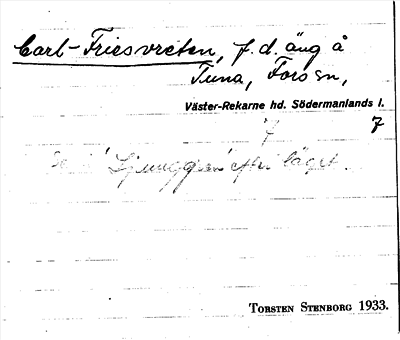 Carl-Friesvreten, f.d. äng å
Tuna, Fors sn,
Väster-Rekarne hd. Södermanlands l.
7
7
Se "Ljunggren" efter läget.
TORSTEN STENBORG 1933.